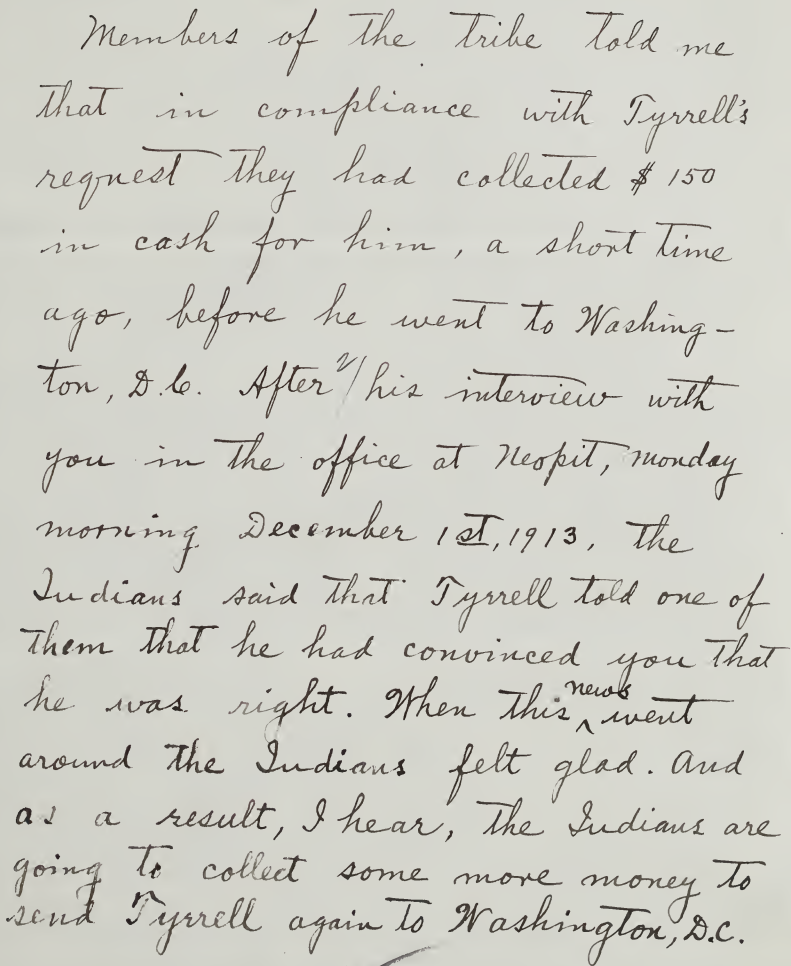 Members of the tribe told me
that in compliance with Tyrrell's
request they had collected $150
in cash for him, a short time
ago, before he went to Washing-
ton, D.C. After his interview with
you in the office at Neopit, Monday
morning December 1st, 1913, the
Indians said that Tyrrell told one of
them that he had convinced you that
he was right. When this news went
around the Indians felt glad. And
as a result, I hear, the Indians are
going to collect some more money to
send Tyrrell again to Washington, D.C.